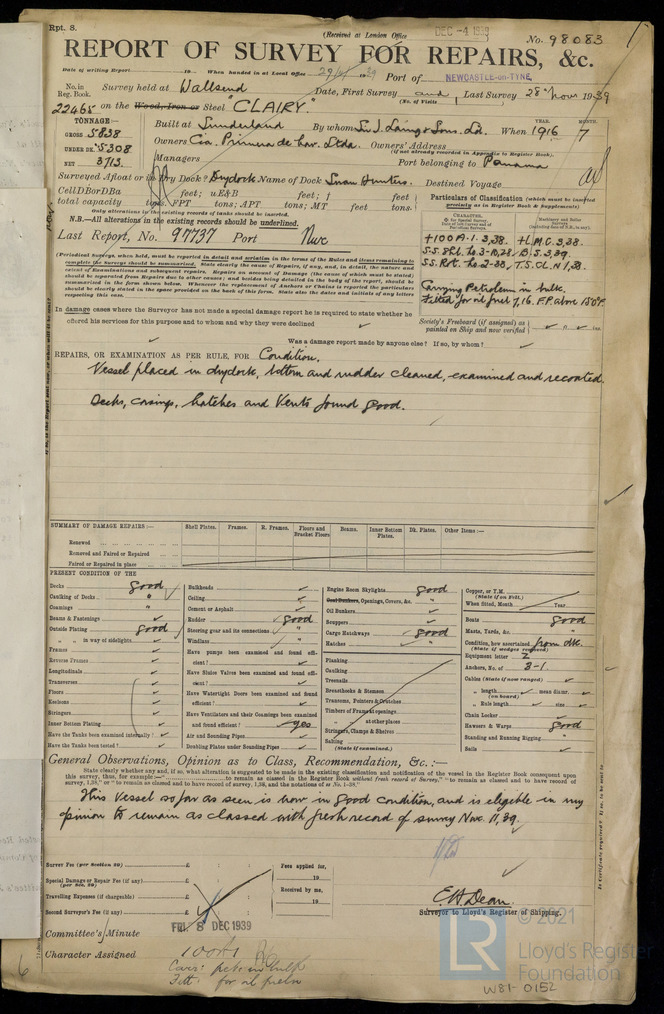 Rpt. 8.
(Received at London Office DEC -4 1939
No. 98083
REPORT OF SURVEY FOR REPAIRS, &c.
Date of writing Report 19 When handed in at Local Office 29/11/1939 Port of NEWCASTLE-ON-TYNE
No. in Reg. Book. Survey held at Wallsend Date, First Survey and Last Survey 28th Novr 1939
(No. of Visits 1)
22465 on the Wood, Iron or Steel "CLAIRY"
TONNAGE:—
GROSS 5838
UNDER DK. 5308
NET 3713
Built at Sunderland By whom Sir J. Laing & Sons. Ld. When 1916 7
YEAR. MONTH.
Owners Cia. Primera de Nav. Ltda. Owners' Address
(if not already recorded in Appendix to Register Book.)
Managers Port belonging to Panama
Surveyed Afloat or in Dry Dock? Drydock Name of Dock Swan Hunters. Destined Voyage
Cell DBor DBa feet; uE&B feet; f feet
total capacity tons, FPT tons; APT tons; MT feet tons.
Only alterations in the existing records of tanks should be inserted.
N.B.—All alterations in the existing records should be underlined.
Last Report, No. 97737 Port Nwc
Particulars of Classification (which must be inserted precisely as in Register Book & Supplements)
+100A·1·3,38. +L.M.C. 3,38.
S.S. Sld. No.3-10,28 B.S. 3,39.
S.S. Rot. No.2-38, T.S. CL.N 1,38.
Carrying Petroleum in bulk.
Fitted for oil fuel 7,16. F.P. above 150°F.
Society's Freeboard (if assigned) as painted on Ship and now verified
(Periodical Surveys, when held, must be reported in detail and seriatim in the terms of the Rules and items remaining to complete the Surveys should be summarised. State clearly the cause of Repairs, if any, and, in detail, the nature and extent of Examinations and subsequent repairs. Repairs on account of Damage (the cause of which must be stated) should be separated from Repairs due to other causes; and besides being detailed in the body of the report, should be summarised in the form shown below. Whenever the replacement of Anchors or Chains is reported the particulars should be clearly stated in the space provided on the back of this form. State also the dates and initials of any letters respecting this case.
In damage cases where the Surveyor has not made a special damage report he is required to state whether he
offered his services for this purpose and to whom and why they were declined
Was a damage report made by anyone else? If so, by whom?
REPAIRS, OR EXAMINATION AS PER RULE, FOR Condition.
Vessel placed in drydock, bottom and rudder cleaned, examined and recoated.
Decks, casings, hatches and Vents found good.
SUMMARY OF DAMAGE REPAIRS:—
Shell Plates. Frames. R. Frames. Floors and Bracket Floors Beams. Inner Bottom Plates. Dk. Plates. Other Items:—
Renewed
Removed and Faired or Repaired
Faired or Repaired in place
PRESENT CONDITION OF THE
Decks good
Caulking of Decks "
Coamings "
Beams & Fastenings
Outside Plating good
" " in way of sidelights
Frames
Reverse Frames
Longitudinals
Transverses
Floors
Keelsons
Stringers
Inner Bottom Plating
Have the Tanks been examined internally?
Have the Tanks been tested?
Bulkheads
Ceiling
Cement or Asphalt
Rudder good
Steering gear and its connections
Windlass
Have pumps been examined and found efficient?
Have Sluice Valves been examined and found efficient?
Have Watertight Doors been examined and found efficient?
Have Ventilators and their Coamings been examined and found efficient? yes
Air and Sounding Pipes
Doubling Plates under Sounding Pipes
Engine Room Skylights good
Coal Bunkers, Openings, Covers, &c.
Oil Bunkers
Scuppers
Cargo Hatchways good
Hatches
Planking
Caulking
Treenails
Breasthooks & Stemson
Transoms, Pointers & Crutches
Timbers of Frame at openings
at other places
Stringers, Clamps & Shelves
Salting
(State if examined.)
Copper, or Y.M.
(State if on Felt.)
When fitted, Month Year
Boats good
Masts, Yards, &c.
Condition, how ascertained from dk.
(State if wedges removed)
Equipment letter Z
Anchors, No. of 3-1.
Cables (State if now ranged)
" length (on board) mean diamr.
" Rule length size
Chain Locker
Hawsers & Warps good
Standing and Running Rigging
Sails
General Observations, Opinion as to Class, Recommendation, &c.:—
State clearly whether any, and if so, what alteration is suggested to be made in the existing classification and notification of the vessel in the Register Book consequent upon
This Vessel so far as seen is now in good condition, and is eligible in my
opinion to remain as classed with fresh record of survey Nov. 11,39.
Survey Fee (per Section 29) £
Special Damage or Repair Fee (if any) £
(per Sec. 29)
Travelling Expenses (if chargeable) £
Second Surveyor's Fee (if any) £
Fees applied for, 19
Received by me, 19
E H Dean.
Surveyor to Lloyd's Register of Shipping.
Committee's Minute FRI 8 DEC 1939
Character Assigned 100A1
Carr: petr in bulk
Fitt: for oil fuel
LR
© 2021
Lloyd's Register
Foundation
W81-0152